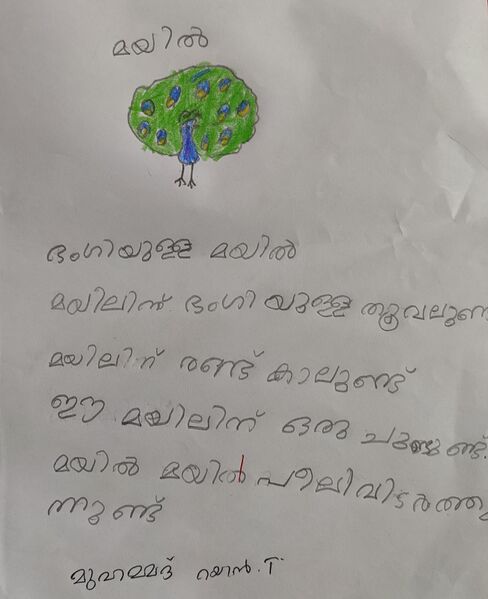 മയിൽ
ഭംഗിയുള്ള മയിൽ
മയിലിന് ഭംഗിയുള്ള തൂവലുണ
മയിലിന് രണ്ട് കാലുണ്ട്
ഈ മയിലിന് ഒരു ചുണ്ടുണ്ട്.
മയിൽ മയിൽ പീലിവിടർത്തു
ന്നുണ്ട്
മുഹമ്മദ് T